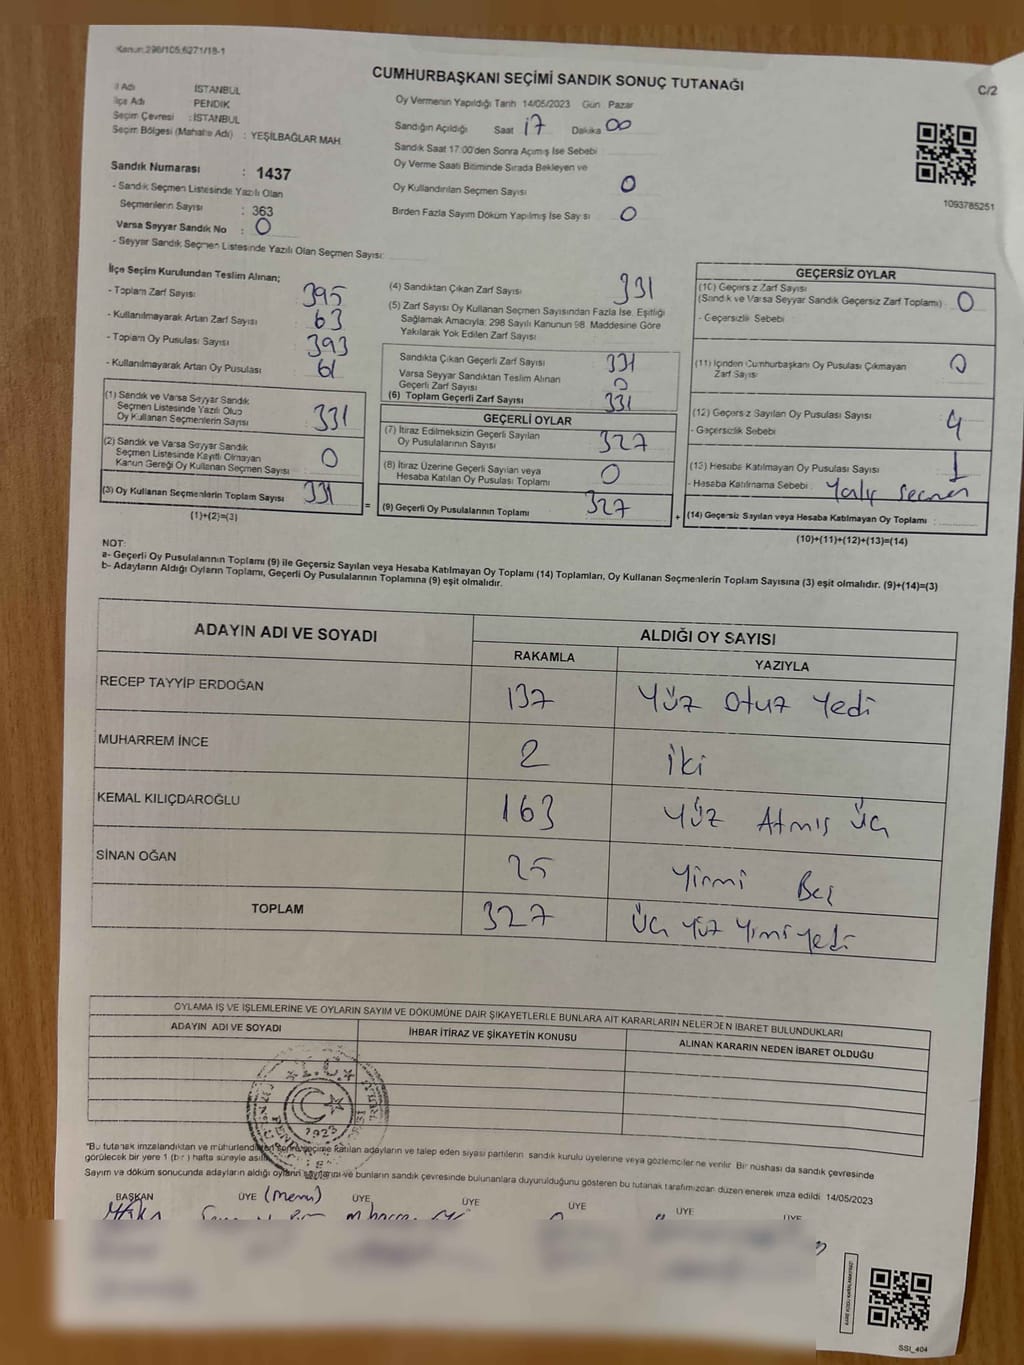 Kanun:298/105;6271/18-1
CUMHURBAŞKANI SEÇİMİ SANDIK SONUÇ TUTANAĞI
C/2
İl Adı İSTANBUL
İlçe Adı PENDİK
Seçim Çevresi : İSTANBUL
Seçim Bölgesi (Mahalle Adı) : YEŞİLBAĞLAR MAH.
Oy Vermenin Yapıldığı Tarih 14/05/2023 Gün Pazar
Sandığın Açıldığı Saat 17 Dakika 00
Sandık Saat 17:00'den Sonra Açılmış İse Sebebi
Oy Verme Saati Bitiminde Sırada Bekleyen ve
Oy Kullandırılan Seçmen Sayısı 0
Birden Fazla Sayım Döküm Yapılmış İse Sayısı 0
1093785251
Sandık Numarası : 1437
- Sandık Seçmen Listesinde Yazılı Olan
Seçmenlerin Sayısı : 363
Varsa Seyyar Sandık No : 0
- Seyyar Sandık Seçmen Listesinde Yazılı Olan Seçmen Sayısı:
İlçe Seçim Kurulundan Teslim Alınan;
- Toplam Zarf Sayısı 395
- Kullanılmayarak Artan Zarf Sayısı 63
- Toplam Oy Pusulası Sayısı 393
- Kullanılmayarak Artan Oy Pusulası 61
(1) Sandık ve Varsa Seyyar Sandık
Seçmen Listesinde Yazılı Olup
Oy Kullanan Seçmenlerin Sayısı 331
(2) Sandık ve Varsa Seyyar Sandık
Seçmen Listesinde Kayıtlı Olmayan
Kanun Gereği Oy Kullanan Seçmen Sayısı 0
(3) Oy Kullanan Seçmenlerin Toplam Sayısı 331
(1)+(2)=(3)
=
(4) Sandıktan Çıkan Zarf Sayısı 331
(5) Zarf Sayısı Oy Kullanan Seçmen Sayısından Fazla İse, Eşitliği
Sağlamak Amacıyla; 298 Sayılı Kanunun 98. Maddesine Göre
Yakılarak Yok Edilen Zarf Sayısı
Sandıkta Çıkan Geçerli Zarf Sayısı 331
Varsa Seyyar Sandıktan Teslim Alınan
Geçerli Zarf Sayısı 0
(6) Toplam Geçerli Zarf Sayısı 331
GEÇERLİ OYLAR
(7) İtiraz Edilmeksizin Geçerli Sayılan
Oy Pusulalarının Sayısı 327
(8) İtiraz Üzerine Geçerli Sayılan veya
Hesaba Katılan Oy Pusulası Toplamı 0
(9) Geçerli Oy Pusulalarının Toplamı 327
+
GEÇERSİZ OYLAR
(10) Geçersiz Zarf Sayısı
(Sandık ve Varsa Seyyar Sandık Geçersiz Zarf Toplamı) 0
- Geçersizlik Sebebi
(11) İçinden Cumhurbaşkanı Oy Pusulası Çıkmayan
Zarf Sayısı 0
(12) Geçersiz Sayılan Oy Pusulası Sayısı 4
- Geçersizlik Sebebi
(13) Hesaba Katılmayan Oy Pusulası Sayısı 1
- Hesaba Katılmama Sebebi
(14) Geçersiz Sayılan veya Hesaba Katılmayan Oy Toplamı
(10)+(11)+(12)+(13)=(14)
NOT:
a- Geçerli Oy Pusulalarının Toplamı (9) ile Geçersiz Sayılan veya Hesaba Katılmayan Oy Toplamı (14) Toplamları, Oy Kullanan Seçmenlerin Toplam Sayısına (3) eşit olmalıdır. (9)+(14)=(3)
b- Adayların Aldığı Oyların Toplamı, Geçerli Oy Pusulalarının Toplamına (9) eşit olmalıdır.
ADAYIN ADI VE SOYADI ALDIĞI OY SAYISI
RAKAMLA YAZIYLA
RECEP TAYYİP ERDOĞAN 137 Yüz Otuz Yedi
MUHARREM İNCE 2 iki
KEMAL KILIÇDAROĞLU 163 Yüz Atmış Üç
SİNAN OĞAN 25 Yirmi Beş
TOPLAM 327 Üç Yüz Yirmi Yedi
OYLAMA İŞ VE İŞLEMLERİNE VE OYLARIN SAYIM VE DÖKÜMÜNE DAİR ŞİKAYETLERLE BUNLARA AİT KARARLARIN NELERDEN İBARET BULUNDUKLARI
ADAYIN ADI VE SOYADI İHBAR İTİRAZ VE ŞİKAYETİN KONUSU ALINAN KARARIN NEDEN İBARET OLDUĞU
T.C.
1923
*Bu tutanak imzalandıktan ve mühürlendikten sonra seçime katılan adayların ve talep eden siyasi partilerin sandık kurulu üyelerine veya gözlemcilerine verilir. Bir nüshası da sandık çevresinde
görülecek bir yere 1 (bir) hafta süreyle asılır.
Sayım ve döküm sonucunda adayların aldığı oyların sayılarını ve bunların sandık çevresinde bulunanlara duyurulduğunu gösteren bu tutanak tarafımızdan düzenlenerek imza edildi. 14/05/2023
BAŞKAN ÜYE (Memu) ÜYE ÜYE ÜYE ÜYE ÜYE
SSI_404